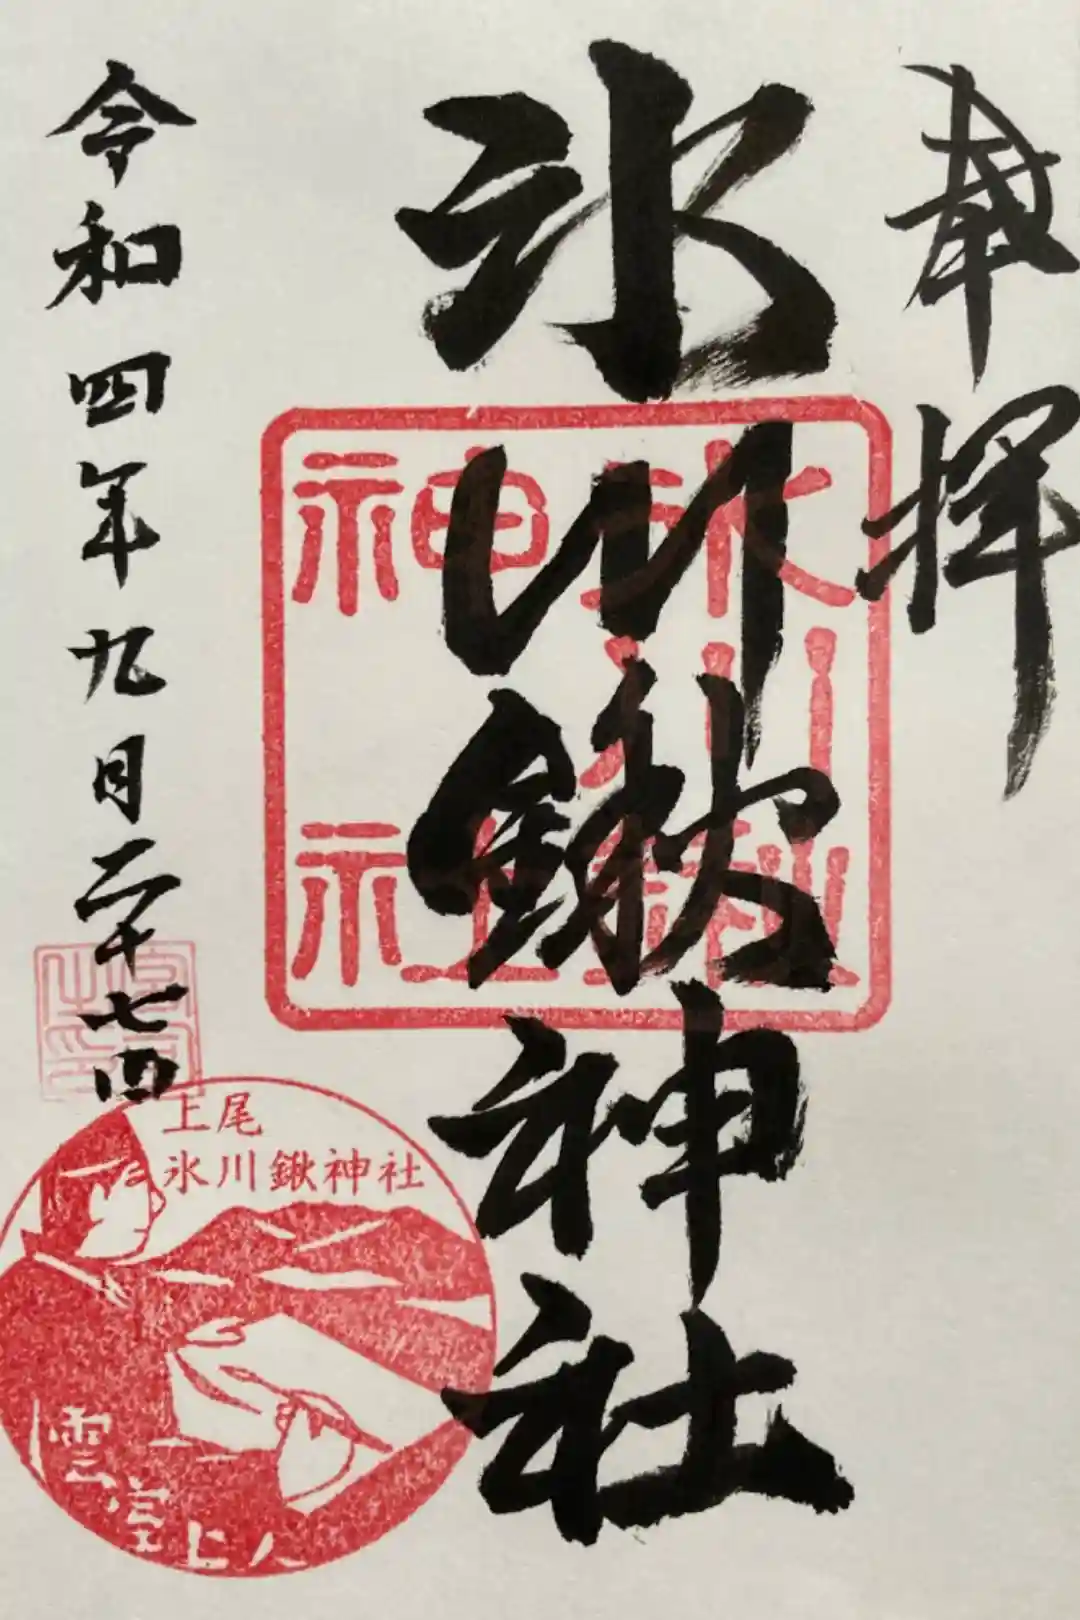 奉拝
氷川鍬神社
氷川鍬
神社
令和四年九月二十七日
宮司
之印
上尾
氷川鍬神社
雲室上人